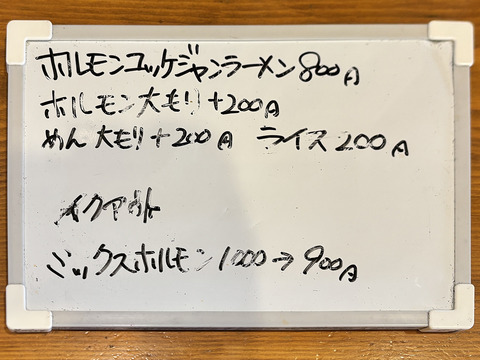 ホルモンユッケジャンラーメン 800円
ホルモン大モリ+200円
めん 大モリ+200円 ライス200円
テイクアウト
ミックスホルモン 1000→900円